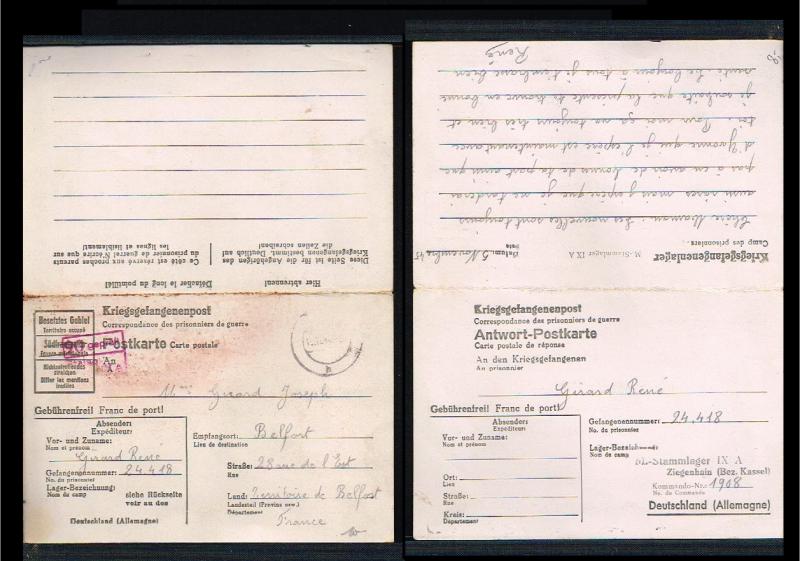 Hier abtrennen!
Détacher le long du pointillé!
Diese Seite ist für die Angehörigen des
Kriegsgefangenen bestimmt. Deutlich auf
die Zeilen schreiben!
Ce côté est réservé aux proches parents
du prisonnier de guerre. N'écrire que sur
les lignes et lisiblement!
Besetztes Gebiet
Territoire occupé
Nichtzutreffendes
streichen
Biffer les mentions
inutiles
Kriegsgefangenenpost
Correspondance des prisonniers de guerre
Postkarte Carte postale
An
A
Mme Girard Joseph
Gebührenfrei! Franc de port!
Absender:
Expéditeur:
Vor- und Zuname:
Nom et prénom
Girard René
Gefangenennummer: 24.418
No. du prisonnier
Lager-Bezeichnung:
Nom du camp
siehe Rückseite
voir au dos
Deutschland (Allemagne)
Empfangsort: Belfort
Lieu de destination
Straße: 28 rue de l'Est
Rue
Land: Territoire de Belfort
Landesteil (Provinz usw.)
Département
France
Kriegsgefangenenlager
Camp des prisonniers:
M.-Stammlager IX A
Datum: 5 Novembre
Date
Chère Maman: Les nouvelles sont toujours
aussi rares mais j'espère que je ne tarderai
pas à en avoir de bonnes de ta part ainsi que
d'Yvonne qui je l'espère est maintenant avec
toi. Pour moi ça va toujours très bien et
je souhaite que la présente te trouve en bonne
santé. Le bonjour à tous je t'embrasse bien
René
Kriegsgefangenenpost
Correspondance des prisonniers de guerre
Antwort-Postkarte
Carte postale de réponse
An den Kriegsgefangenen
Au prisonnier
Girard René
Gebührenfrei! Franc de port!
Absender:
Expéditeur:
Vor- und Zuname:
Nom et prénom
Ort:
Lieu
Straße:
Rue
Kreis:
Département
Gefangenennummer: 24.418
No. du prisonnier
Lager-Bezeichnung:
Nom du camp
M.-Stammlager IX A
Ziegenhain (Bez. Kassel)
Kommando-Nr.: 1908
No. du Commando
Deutschland (Allemagne)